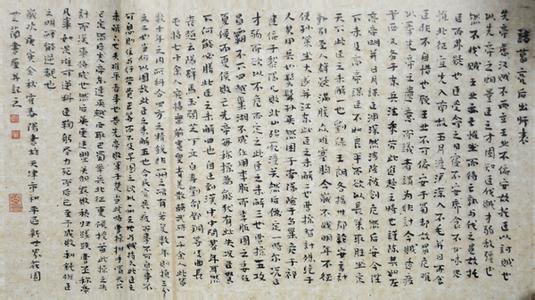 諸葛亮后出師表
先帝慮漢賊不兩立王業不偏安故託臣以討賊也
以先帝之明量臣之才固知臣伐賊才弱敵強也
然不伐賊王業亦亡惟坐而待亡孰與伐之是故託
臣而弗疑也臣受命之日寢不安席食不甘味思
惟北征宜先入南故五月渡瀘深入不毛并日而食
臣非不自惜也顧王業不可偏安於蜀都故冒危難
以奉先帝之遺意而議者謂為非計今賊適疲
於西又務於東兵法乘勞此進趨之時也謹陳其事如左
高帝明并日月謀臣淵深然涉險被創危然后安今陛
下未及高帝謀臣不如良平而欲以長策取勝坐定
天下此臣之未解一也劉繇王朗各據州郡論安言計
動引聖人群疑滿腹眾難塞胸今歲不戰明年不征
使孫策坐大遂并江東此臣之未解二也曹操智計殊絕於
人其用兵也仿佛孫吳然困於南陽險於烏巢危於祁
連偪於黎陽幾敗北山殆死潼關然后偽定一時爾況臣
才弱而欲以不危而定之此臣之未解三也曹操五攻
昌霸不下四越巢湖不成任用李服而李服圖之委任
夏侯而夏侯敗亡先帝每稱操為能猶有此失況臣駑
下何能必勝此臣之未解四也自臣到漢中中間期年耳然
喪趙云陽群馬玉閻芝丁立白壽劉郃鄧銅等及曲長
屯將七十餘人突將無前賨叟青羌散騎武騎一千餘人此皆
數十年之內所糾合四方之精銳非一州之所有若復數年則損三分
之二也當何以圖敵此臣之未解五也今民窮兵疲而事不可息事不
可息則住與行勞費正等而不及今圖之欲以一州之地與賊持久此臣之
未解六也夫難平者事也昔先帝敗軍於楚當此時曹操拊手謂天下
已定然后先帝東連吳越西取巴蜀舉兵北征夏侯授首此操之失
計而漢事將成也然后吳更違盟關羽毀敗秭歸蹉跌曹丕稱帝
凡事如是難可逆料臣鞠躬盡力死而后已至於成敗利鈍非臣
之明所能逆覩也
歲次庚寅金秋宜春陽書於天津市和平區新世界花園
書屋并記之